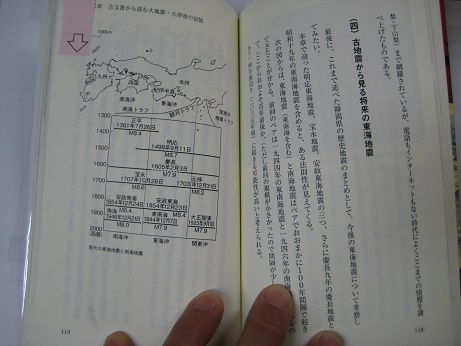 梨・下山梨)まで網羅されているが、電話もインターネットもない時代によくここまでの情報を調
べ上げたものである。
(四) 古地震から見る将来の東海地震
最後に、これまで述べた静岡県の歴史地震のまとめとして、今後の東海地震について考察し
てみたい。
本章で語った明応東海地震、宝永地震、安政東海地震の三つ、さらに慶長九年の慶長地震と
昭和十九年の東南海地震を含めると、ある法則性が見えてくる。
次の図からは、東海地震(東南海を含む)と南海地震はペアでおおまかに100年間隔で起き
てきたことが分かる。前回のペアは一九四四年の東南海地震と一九四六年の南海
118
古文書から読む大地震・大津波の記憶
九州
四国
本州
紀伊半島
南海沖
東海沖
南海トラフ
駿河トラフ
関東沖
相模トラフ
1300
1400
1500
1600
1700
1800
1900
2000
(西暦)
正平
1361年7月26日
M8.4
明応
1498年9月11日
M8.7
慶長
1605年2月3日
M7.9
宝永
1707年10月28日
M8.6
元禄
1703年12月31日
安政南海
1854年12月24日
M8.4
安政東海
1854年12月23日
M8.4
南海
1946年12月21日
M8.0
東南海
1944年12月7日
M7.9
大正関東
1923年9月1日
M7.9
南海沖
東海沖
関東沖
歴代の東海地震と南海地震
119